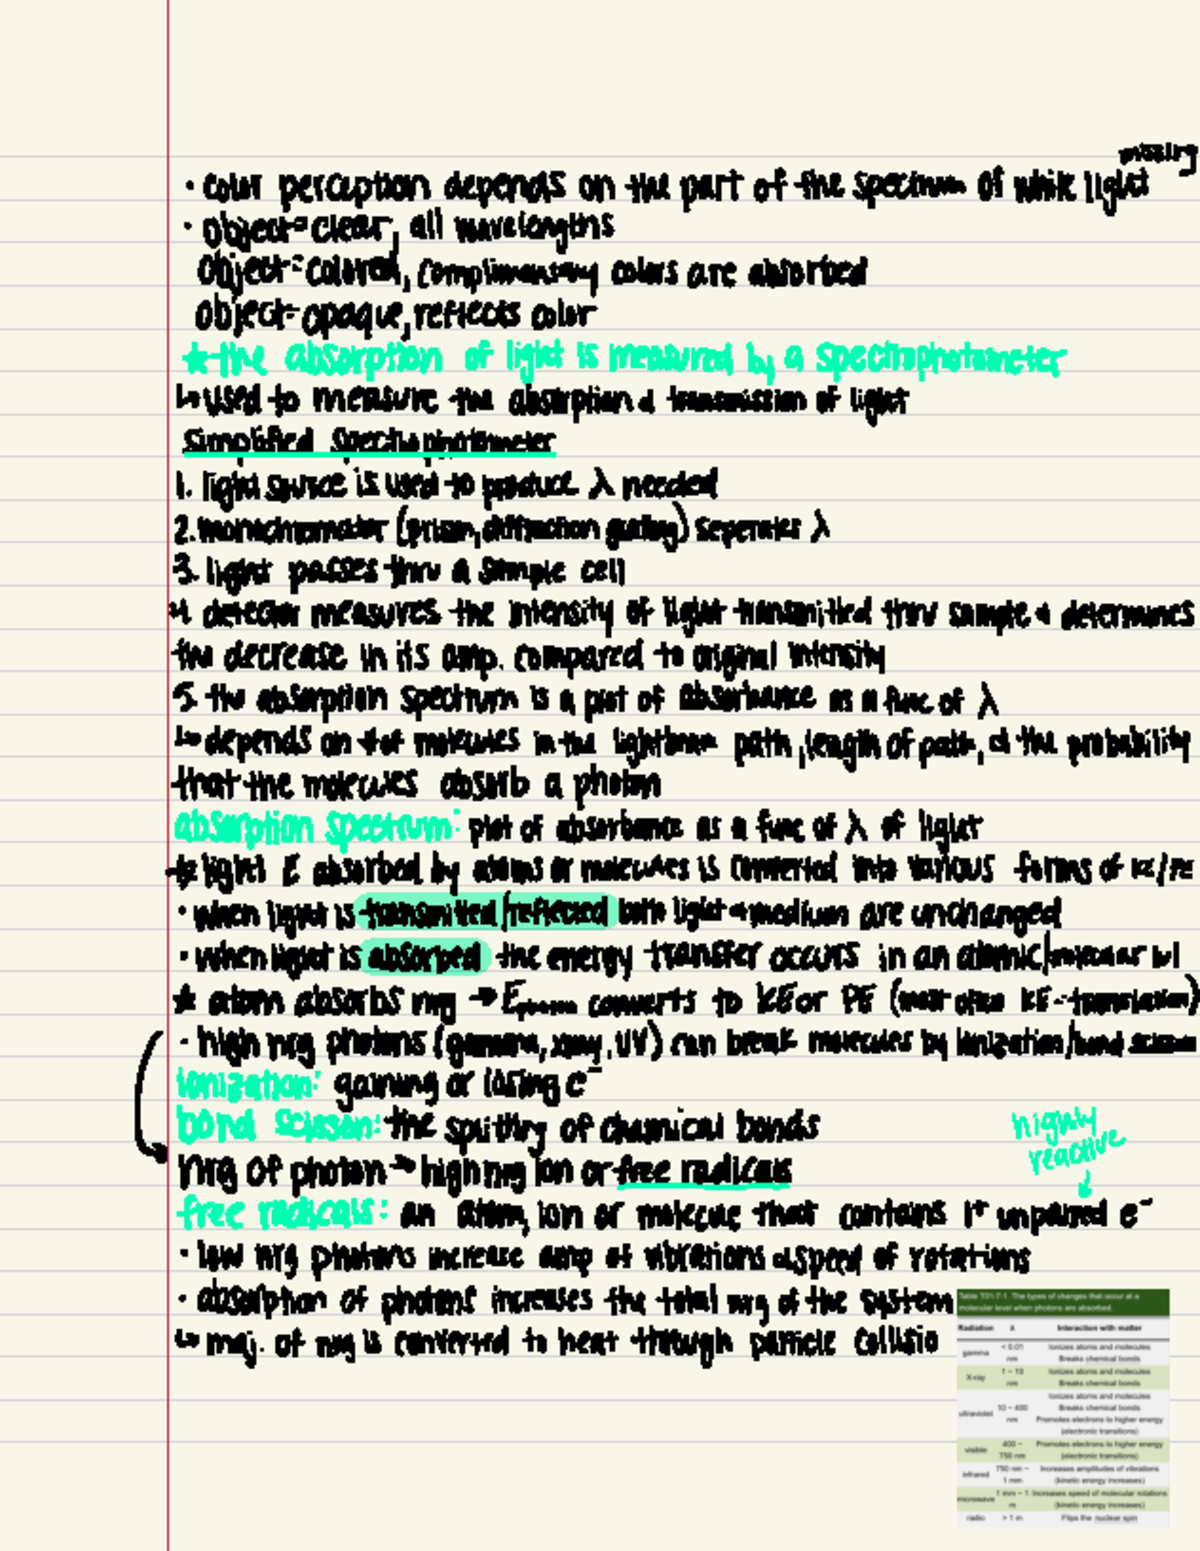 missing
• color perception depends on the part of the spectrum of white light
• object=clear, all wavelengths
object=colored, complimentary colors are absorbed
object=opaque, reflects color
★ the absorption of light is measured by a spectrophotometer
↳ used to measure the absorption & transmission of light
simplified spectrophotometer
1. light source is used to produce λ needed
2. monochromator (prism, diffraction grating) seperates λ
3. light passes thru a sample cell
4. detector measures the intensity of light transmitted thru sample & determines
the decrease in its amp. compared to original intensity
5. the absorption spectrum is a plot of absorbance as a func of λ
↳ depends on # of molecules in the lightbeam path, length of path, & the probability
that the molecules absorb a photon
absorption spectrum: plot of absorbance as a func of λ of light
★ light E absorbed by atoms or molecules is converted into various forms of KE/PE
• when light is transmitted/reflected both light & medium are unchanged
• when light is absorbed the energy transfer occurs in an atomic/molecular lvl
★ atom absorbs nrg → Ephoton converts to KE or PE (most often KE-translation)
• high nrg photons (gamma, xray, UV) can break molecules by ionization/bond scission
ionization: gaining or losing e⁻
bond scisson: the splitting of chemical bonds
highly
reactive
nrg of photon → high nrg ion or free radicals
free radicals: an atom, ion or molecule that contains 1+ unpaired e⁻
• low nrg photons increase amp of vibrations & speed of rotations
• absorption of photons increases the total nrg of the system
↳ maj. of nrg is converted to heat through particle collisio
Table T01-7-1. The types of changes that occur at a
molecular level when photons are absorbed.
Radiation λ Interaction with matter
gamma < 0.01 nm Ionizes atoms and molecules
Breaks chemical bonds
X-ray 1 – 10 nm Ionizes atoms and molecules
Breaks chemical bonds
ultraviolet 10 – 400 nm Ionizes atoms and molecules
Breaks chemical bonds
Promotes electrons to higher energy
(electronic transitions)
visible 400 – 750 nm Promotes electrons to higher energy
(electronic transitions)
infrared 750 nm – 1 mm Increases amplitudes of vibrations
(kinetic energy increases)
microwave 1 mm – 1 m Increases speed of molecular rotations
(kinetic energy increases)
radio > 1 m Flips the nuclear spin